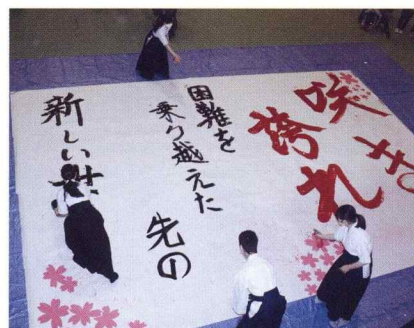 咲き
誇れ
困難を
乗り越えた
先の
新しい